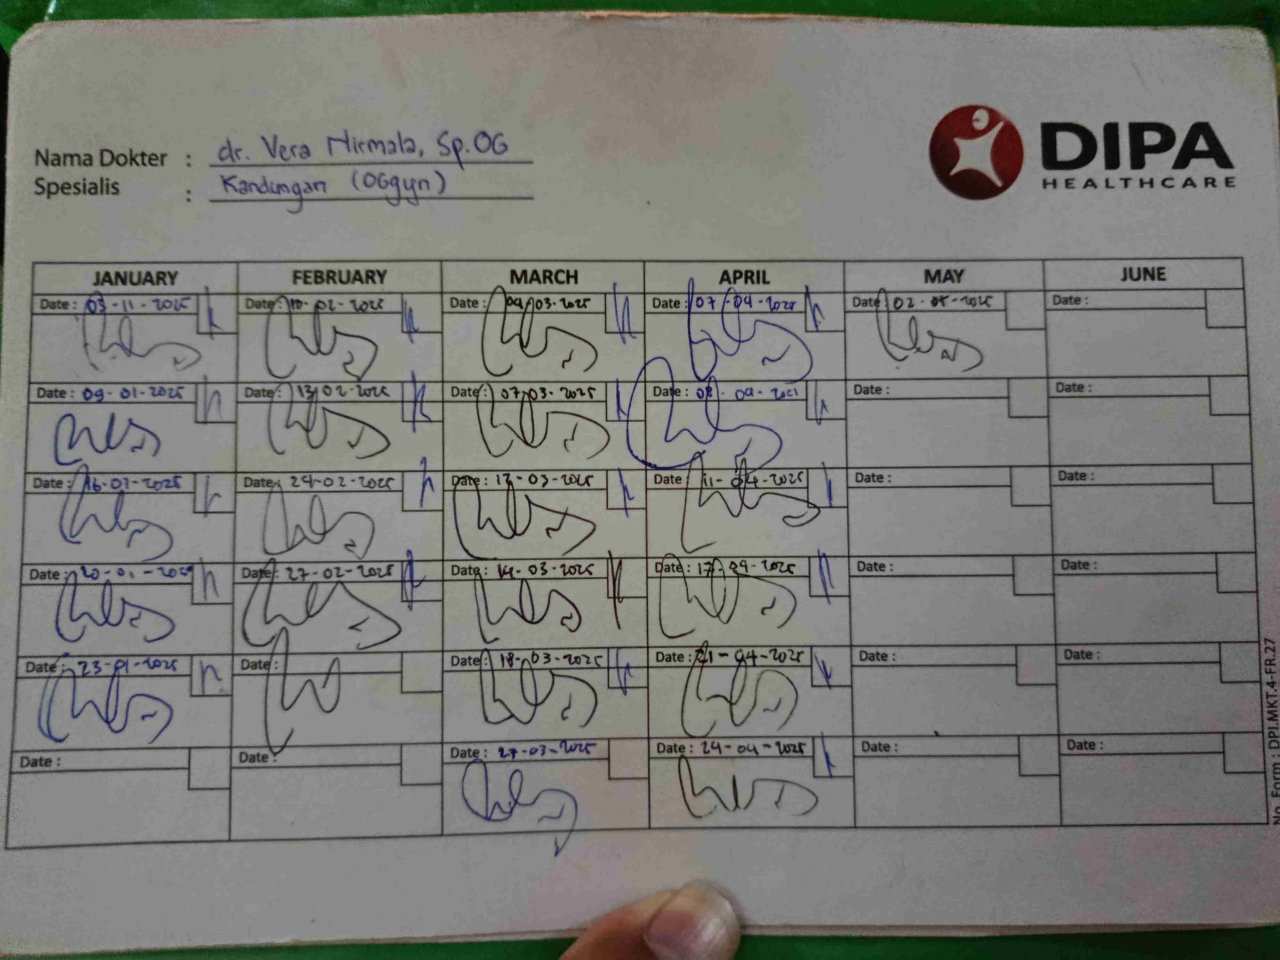 Nama Dokter : dr. Vera Nirmala, Sp.OG
Spesialis : Kandungan (OGgyn)
DIPA
HEALTHCARE
JANUARY FEBRUARY MARCH APRIL MAY JUNE
Date : 03-11-2025 Date : 10-02-2025 Date : 04-03-2025 Date : 07-04-2025 Date : 02-05-2025 Date :
Date : 09-01-2025 Date : 13-02-2025 Date : 07-03-2025 Date : Date : Date :
Date : 16-01-2025 Date : 24-02-2025 Date : 12-03-2025 Date : 11-04-2025 Date : Date :
Date : 20-01-2025 Date : 27-02-2025 Date : 14-03-2025 Date : 17-04-2025 Date : Date :
Date : 23-01-2025 Date : Date : 18-03-2025 Date : 21-04-2025 Date : Date :
Date : Date : Date : 27-03-2025 Date : 24-04-2025 Date : Date :
No. Form : DPI.MKT.4-FR.27